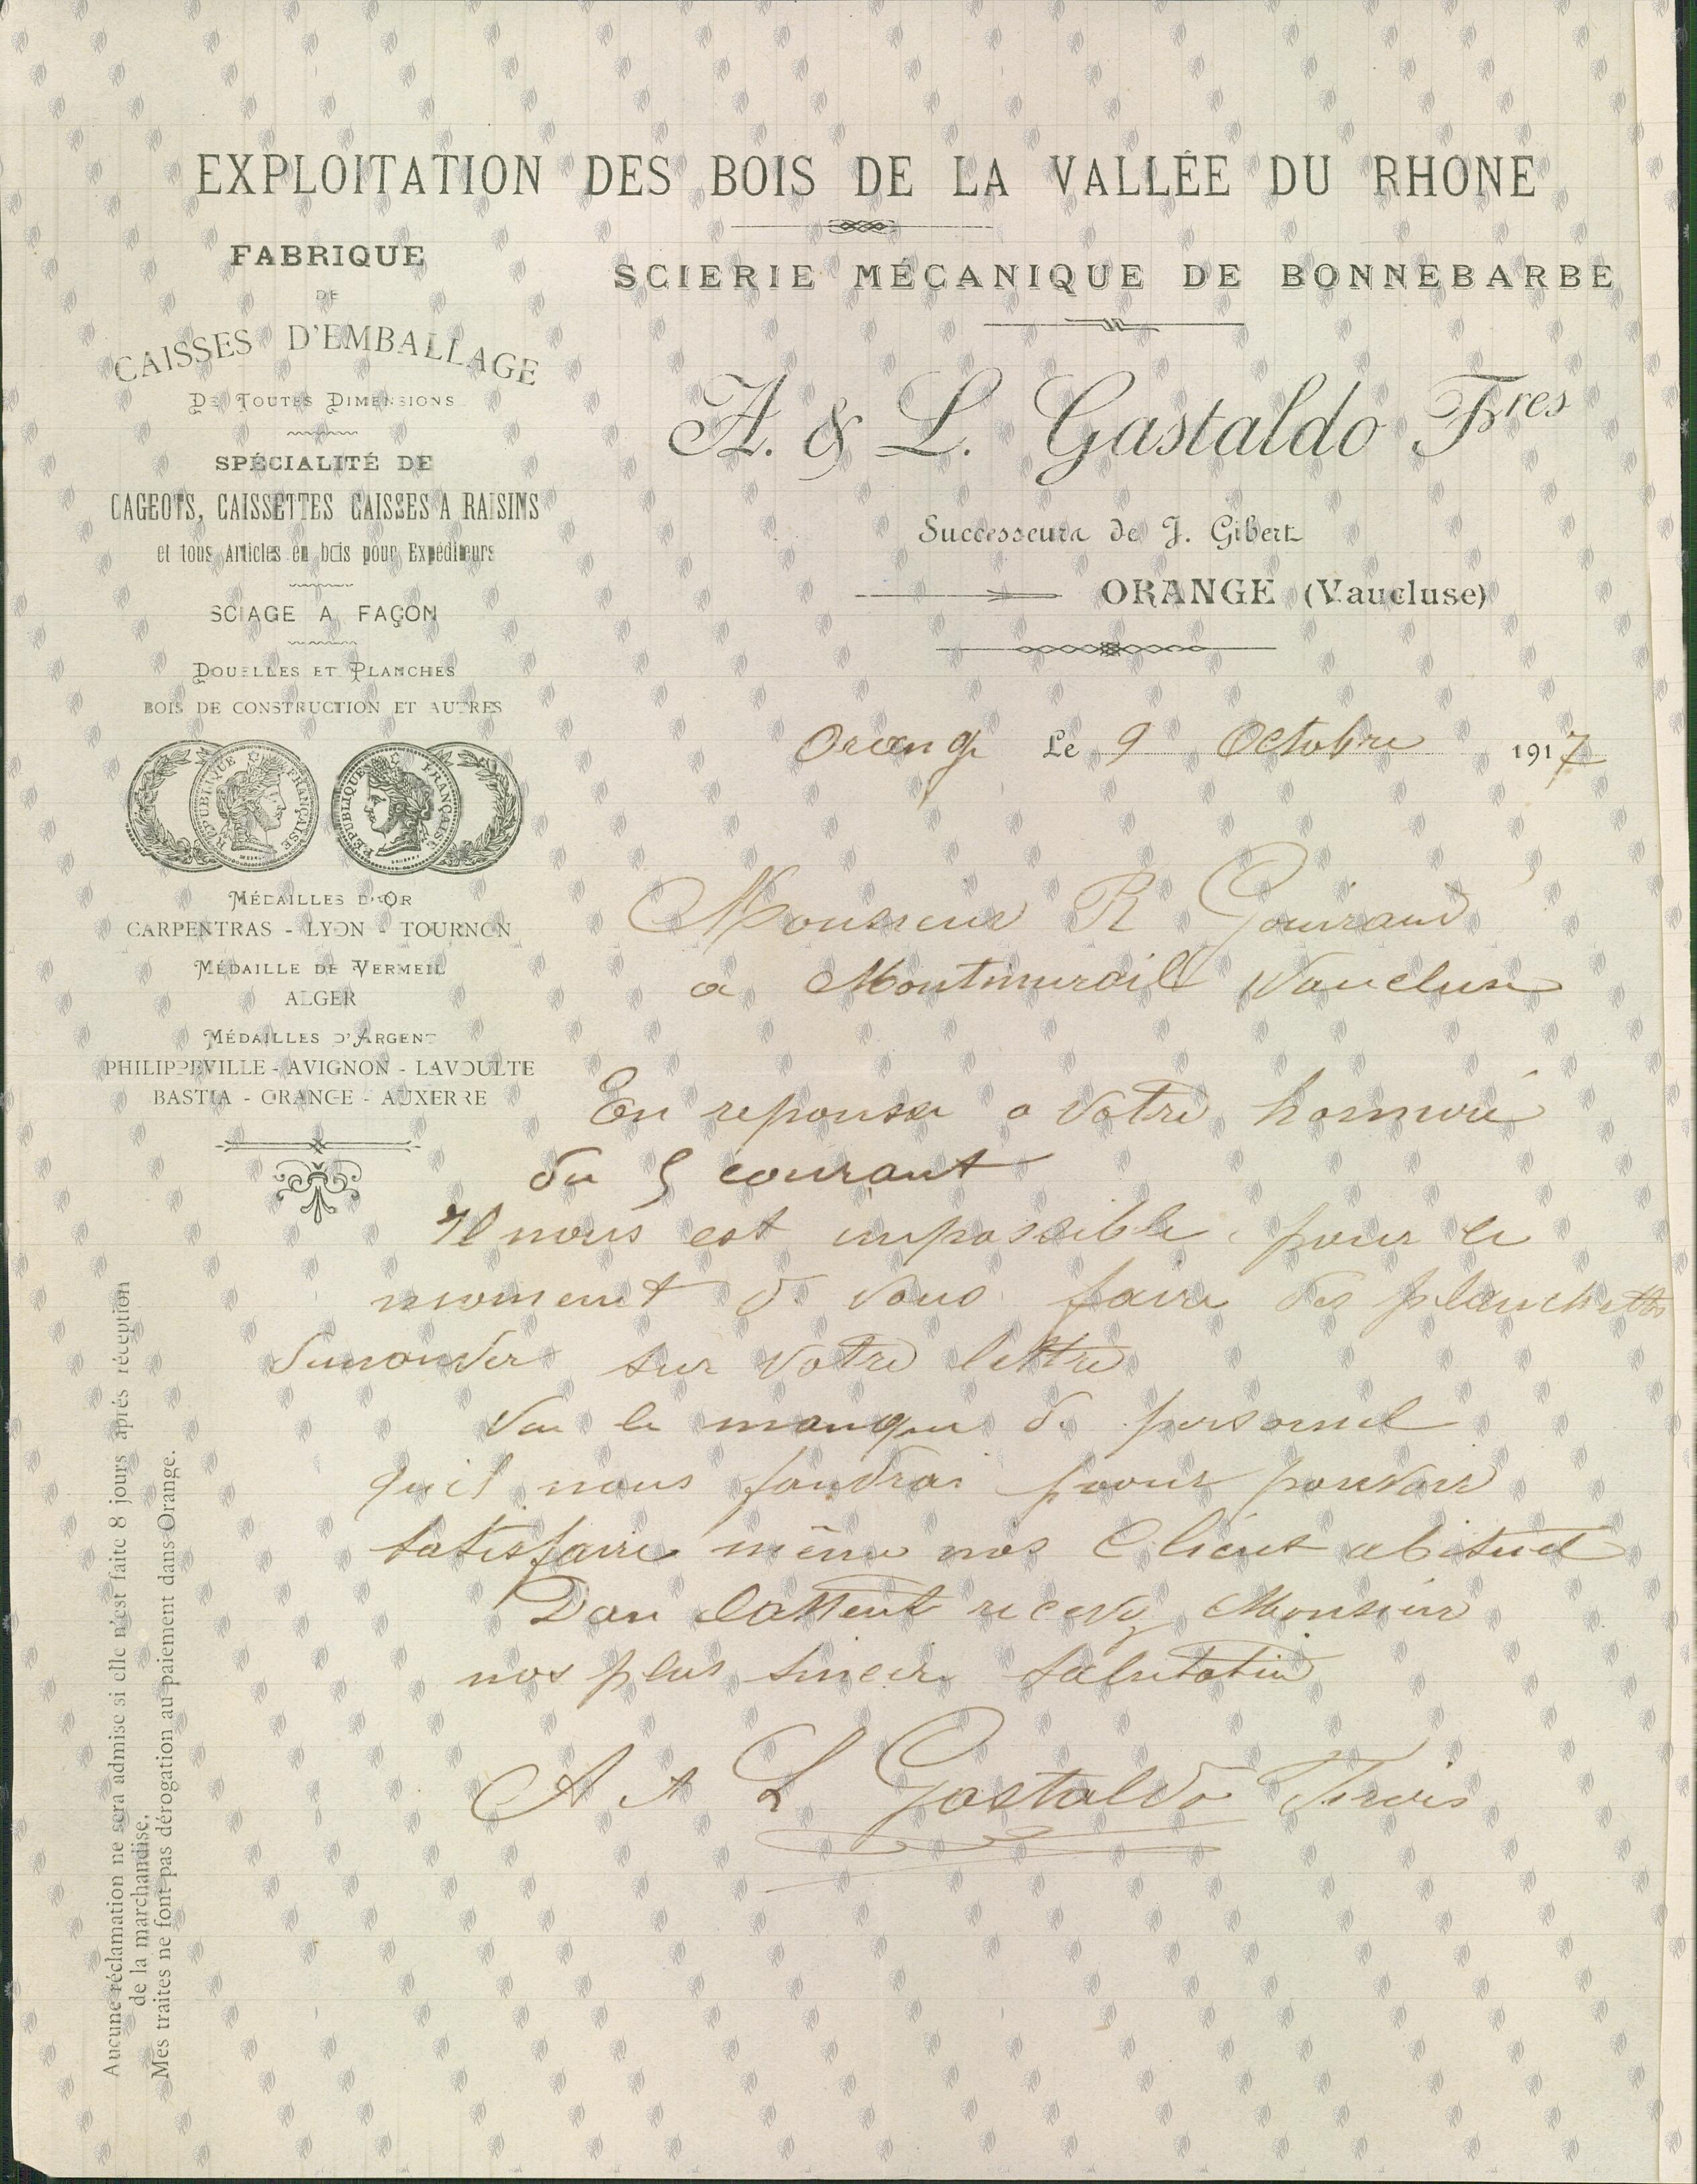 EXPLOITATION DES BOIS DE LA VALLÉE DU RHONE
FABRIQUE
DE
CAISSES D'EMBALLAGE
DE TOUTES DIMENSIONS
SPÉCIALITÉ DE
CAGEOTS, CAISSETTES CAISSES A RAISINS
et tous Articles en bois pour Expéditeurs
SCIAGE A FAÇON
DOUELLES ET PLANCHES
BOIS DE CONSTRUCTION ET AUTRES
RÉPUBLIQUE FRANÇAISE
RÉPUBLIQUE FRANÇAISE
MÉDAILLES D'OR
CARPENTRAS - LYON - TOURNON
MÉDAILLE DE VERMEIL
ALGER
MÉDAILLES D'ARGENT
PHILIPPEVILLE - AVIGNON - LAVOULTE
BASTIA - ORANGE - AUXERRE
SCIERIE MÉCANIQUE DE BONNEBARBE
A. & L. Gastaldo Fres
Successeurs de J. Gibert
ORANGE (Vaucluse)
Orange Le 9 Octobre 1917
Monsieur R Gouiraud
a Montmirail Vaucluse
En reponse a votre honnoré
du 5 courant
Il nous est impossible pour le
moment de vous faire des planchettes
demander sur votre lettre
Vu le manque de personel
quil nous faudrai pour pouvoir
satisfaire même nos Client abituel
Dan lattent recevez Monsieur
nos plus sincere salutation
A & L Gastaldo Freres
Aucune réclamation ne sera admise si elle n'est faite 8 jours après réception
de la marchandise.
Mes traites ne font pas dérogation au paiement dans Orange.